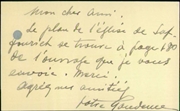 Mon cher Ami.
Le plan de l'église de Saf-
se trouve à page 480
de l'ouvrage que je vous
envoie. Merci.
Agréez mes amitiés
Votre